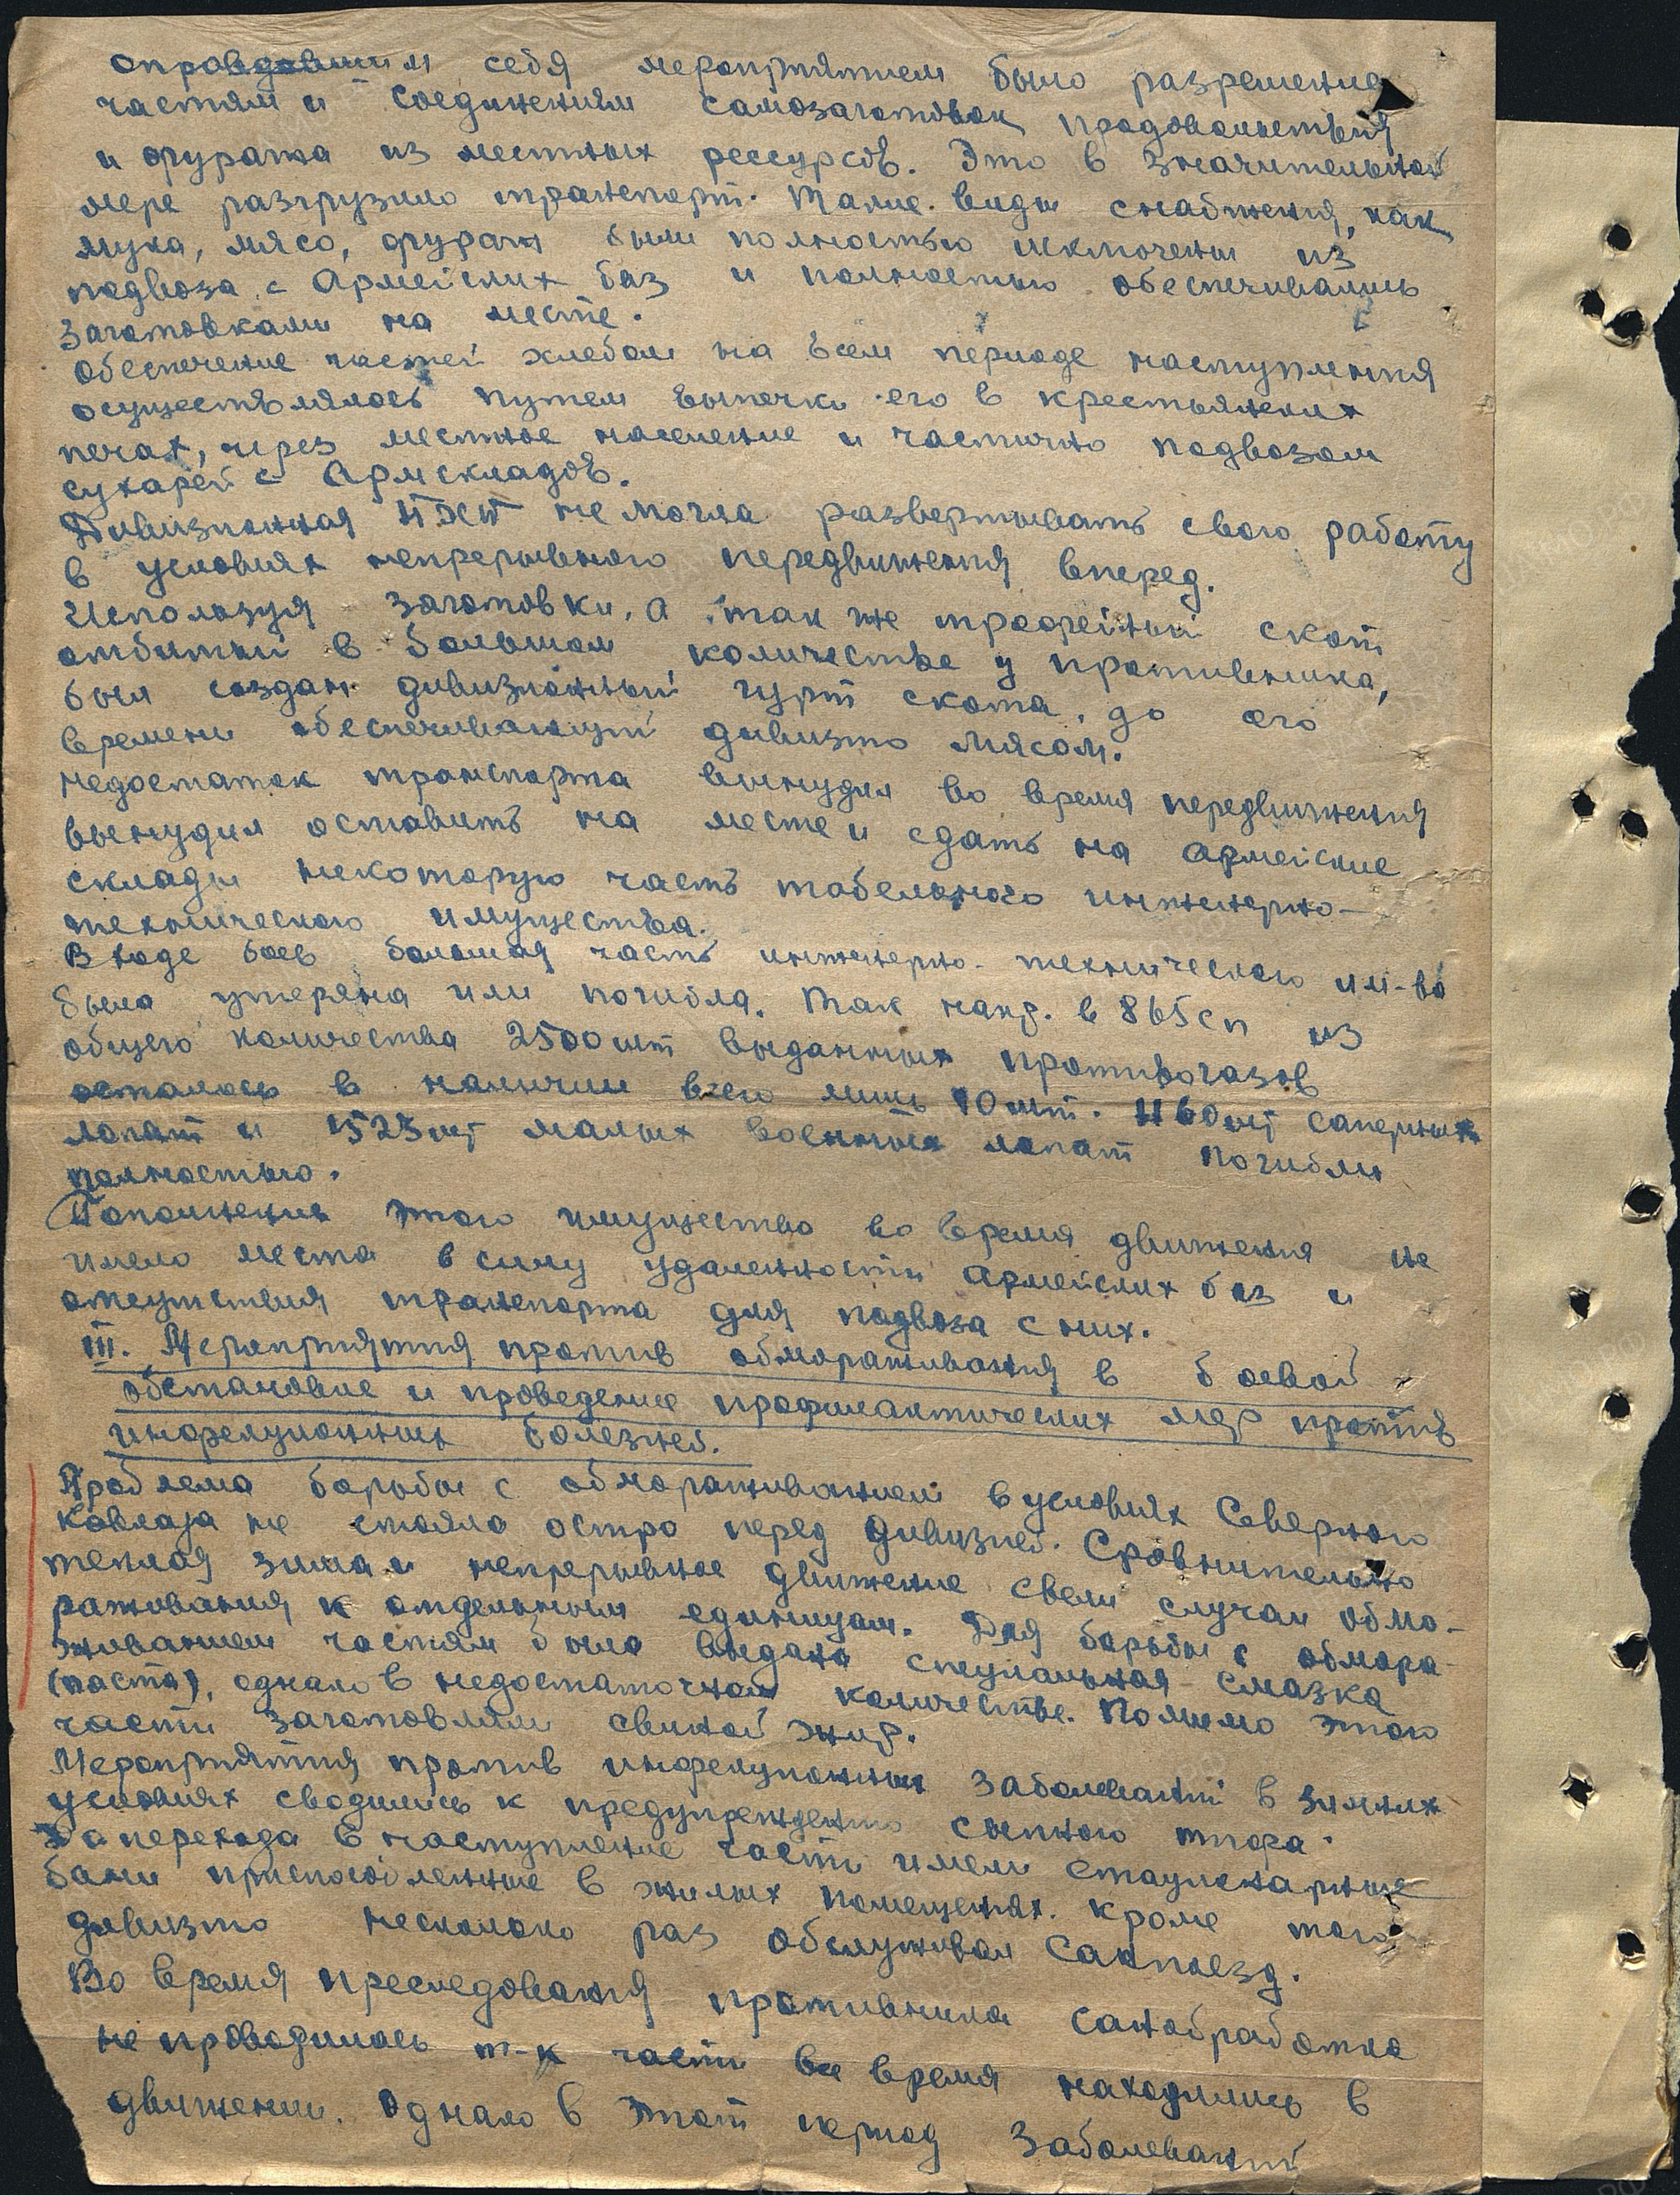 оправдавшим себя мероприятием было разрешение
частям и соединениям самозаготовок продовольствия
и фуража из местных рессурсов. Это в значительной
мере разгрузило транспорт. Такие виды снабжения, как
мука, мясо, фураж были полностью исключены из
подвоза с Армейских баз и полностью обеспечивались
заготовками на месте.
Обеспечение частей хлебом на всем периоде наступления
осуществлялось путем выпечки его в крестьянских
печах, через местное население и частично подвозом
сухарей с Армскладов.
Дивизионная ПХП не могла развертывать свою работу
в условиях непрерывного передвижения вперед.
Используя заготовки, а так же трофейный скот
отбитый в большом количестве у противника,
был создан дивизионный гурт скота, до его
времени обеспечивающий дивизию мясом.
Недостаток транспорта вынудил во время передвижения
вынудил оставить на месте и сдать на армейские
склады некоторую часть табельного инженерно-
технического имущества.
В ходе боев большая часть инженерно-технического им-ва
была утеряна или погибла. Так напр. в 865 сп из
общего количества 2500 шт выданных противогазов
осталось в наличии всего лишь 10 шт. 1160 шт саперных
лопат и 1523 шт малых военных лопат погибли
полностью.
Пополнение этого имущества во время движения не
имело места в силу удаленности армейских баз и
отсутствия транспорта для подвоза с них.
III. Мероприятия против обмораживания в боевой
обстановке и проведение профилактических мер против
инфекционных болезней.
Проблема борьбы с обмораживанием в условиях Северного
Кавказа не стояла остро перед дивизией. Сравнительно
теплая зима и непрерывное движение свели случаи обмо-
раживания к отдельным единицам. Для борьбы с обмора-
живанием частям была выдана специальная смазка
(паста), однако в недостаточном количестве. Помимо этого
части заготовляли свиной жир.
Мероприятия против инфекционных заболеваний в зимних
условиях сводились к предупреждению сыпного тифа.
До перехода в наступление части имели стационарные
бани приспособленные в жилых помещениях. Кроме того
дивизию несколько раз обслуживал Санпоезд.
Во время преследования противника санобработка
не проводилась т-к части все время находились в
движении. Однако в этот период заболеваний